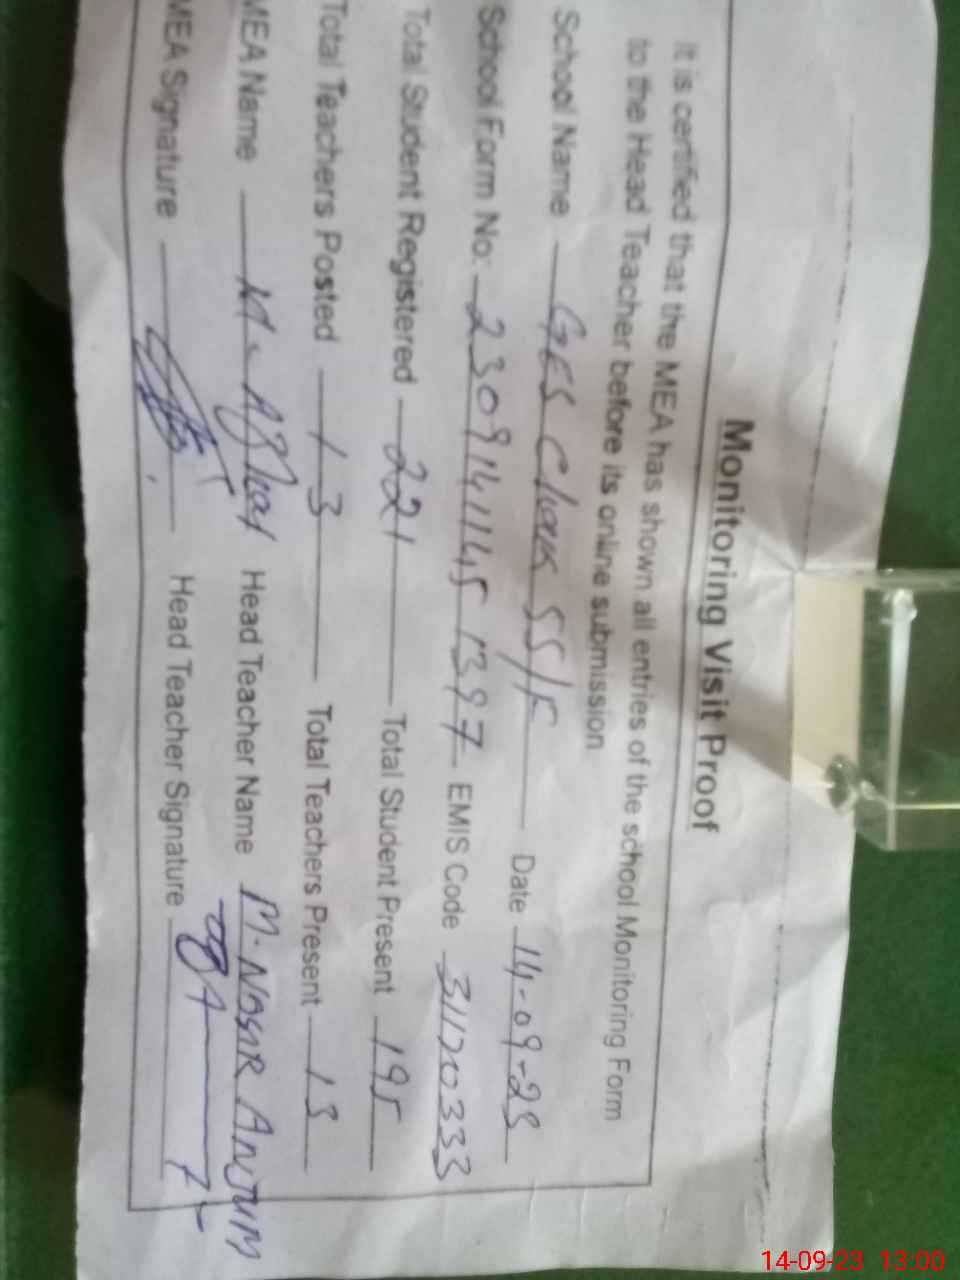 Monitoring Visit Proof
It is certified that the MEA has shown all entries of the school Monitoring Form
to the Head Teacher before its online submission
School Name GES Chak 55/F Date 14-09-23
School Form No: 230914114513 97 EMIS Code 31120333
Total Student Registered 221 Total Student Present 195
Total Teachers Posted 13 Total Teachers Present 13
MEA Name M. Afzal Head Teacher Name M. NASIR ANJUM
MEA Signature Head Teacher Signature
14-09-23 13:00